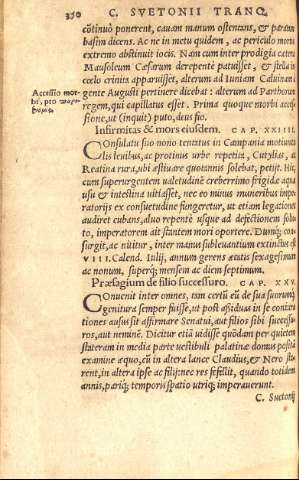 350 C. SVETONII TRANQ.
cōtinuò ponerent, cauam manum ostentans, & parum
basim dicens. Ac ne in metu quidem, ac periculo mortis
extremo abstinuit iocis. Nam cum inter prodigia cætera
Mausoleum Cæsarum derepente patuisset, & stella in
cœlo crinita apparuisset, alterum ad Iuniam Caluinam
gente Augusti pertinere dicebat: alterum ad Parthorum
regem, qui capillatus esset. Prima quoque morbi acces
sione, ut (inquit) puto, deus fio.
Accessio mor
bi, pro
Infirmitas & mors eiusdem. CAP. XXIIII.
COnsulatu suo nono tentatus in Campania motiuncu
lis leuibus, ac protinus urbe repetita, Cutylias, ac
Reatina rura, ubi æstiuare quotannis solebat, petijt. Hic,
cum super urgentem ualetudinē creberrimo frigidæ aquæ
usu & intestina uitiasset, nec eo minus muneribus impe
ratorijs ex consuetudine fungeretur, ut etiam legationes
audiret cubans, aluo repentè usque ad defectionem solu
ta, imperatorem ait stantem mori oportere. Dumq́; con
surgit, ac nititur, inter manus subleuantium extinctus est
VIII. Calend. Iulij, annum gerens ætatis sexagesimum
ac nonum, superq́; mensem ac diem septimum.
Præsagium de filio successuro. CAP. XXV.
COnuenit inter omnes, tam certū eū de sua suorumq́;
genitura semper fuisse, ut post assiduas in se coniura
tiones ausus sit affirmare Senatui, aut filios sibi successu
ros, aut neminē. Dicitur etiā uidisse quōdam per quietem
stateram in media parte uestibuli palatinæ domus positā
examine æquo, cū in altera lance Claudius, & Nero sta
rent, in altera ipse ac filij: nec res fefellit, quando totidem
annis, pariq́; temporis spatio utriq́; imperauerunt.
C. Suetonij